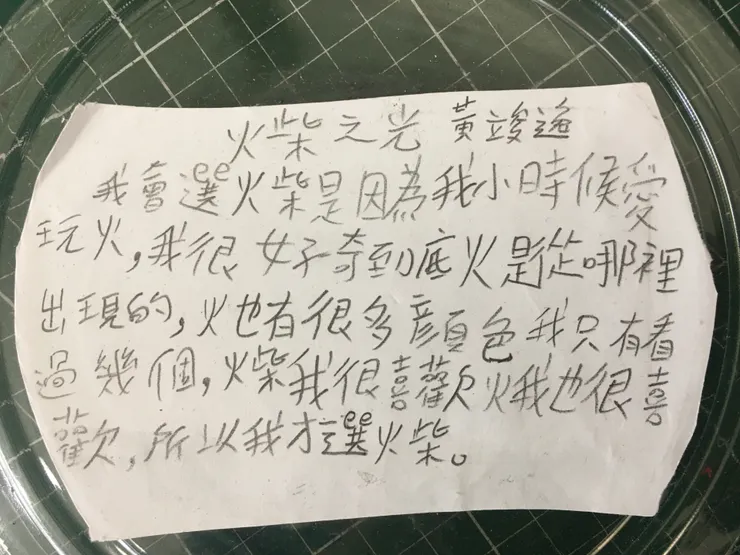 火柴之光 黃竣逸
我會選火柴是因為我小時候愛
玩火,我很好奇到底火是從哪裡
出現的,火也有很多顏色我只有看
過幾個,火柴我很喜歡火我也很喜
歡,所以我才選火柴。